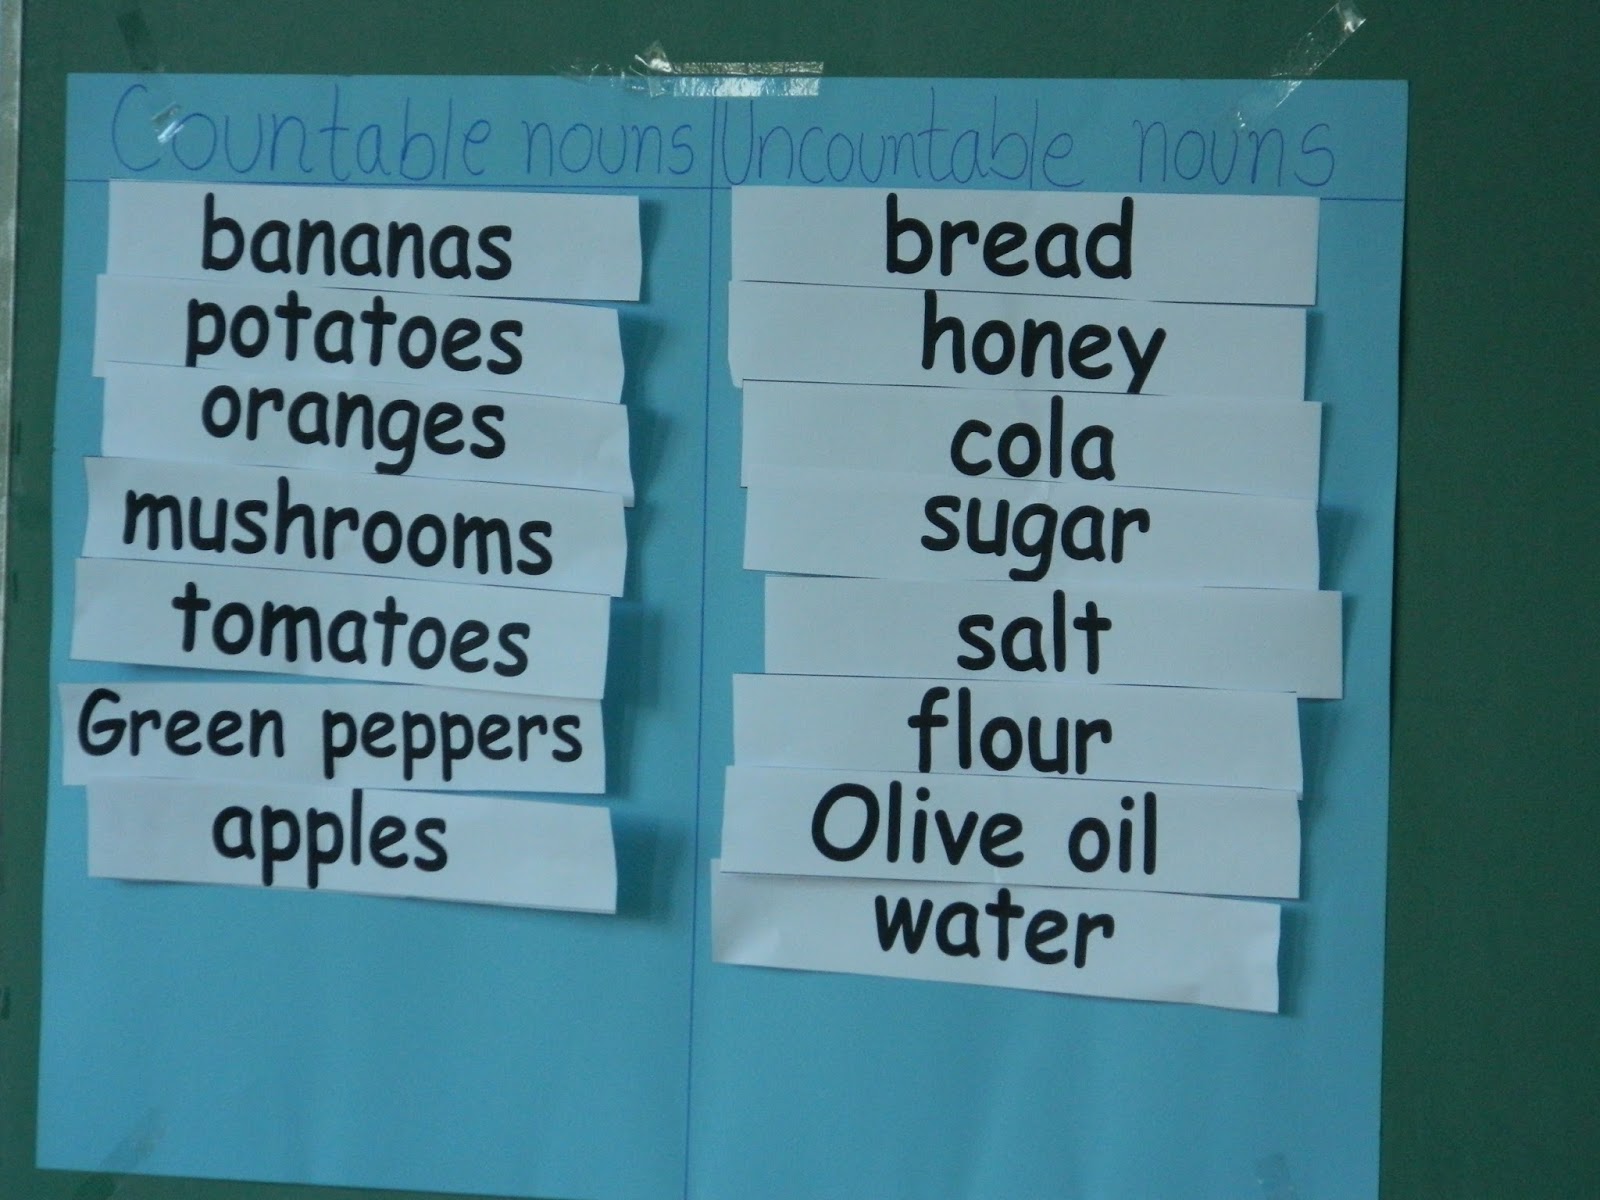 Countable nouns
bananas
potatoes
oranges
mushrooms
tomatoes
Green peppers
apples
Uncountable nouns
bread
honey
cola
sugar
salt
flour
Olive oil
water